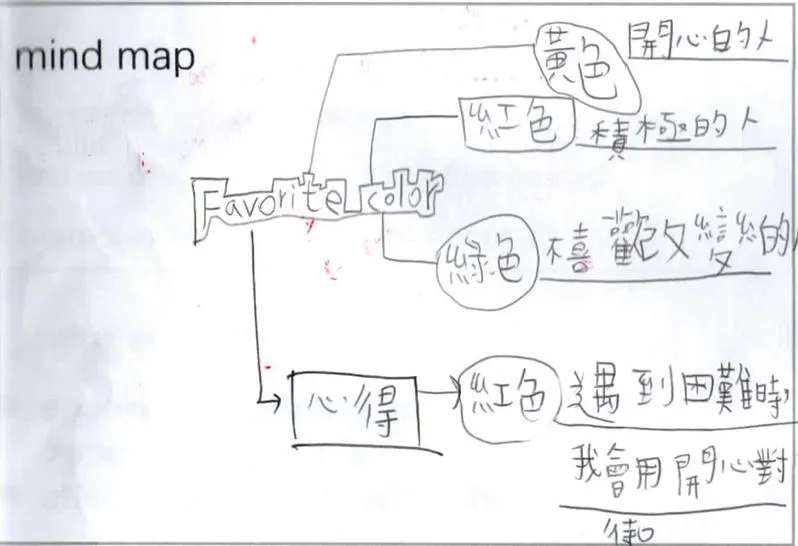 mind map
黃色
開心的人
紅色
積極的人
Favorite color
綠色
禧歡改變的人
心得
紅色
遇到困難時,
我會用開心對
待